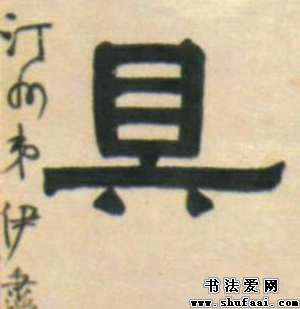 具
汀州弟伊秉
书法爱网
www.shufaai.com